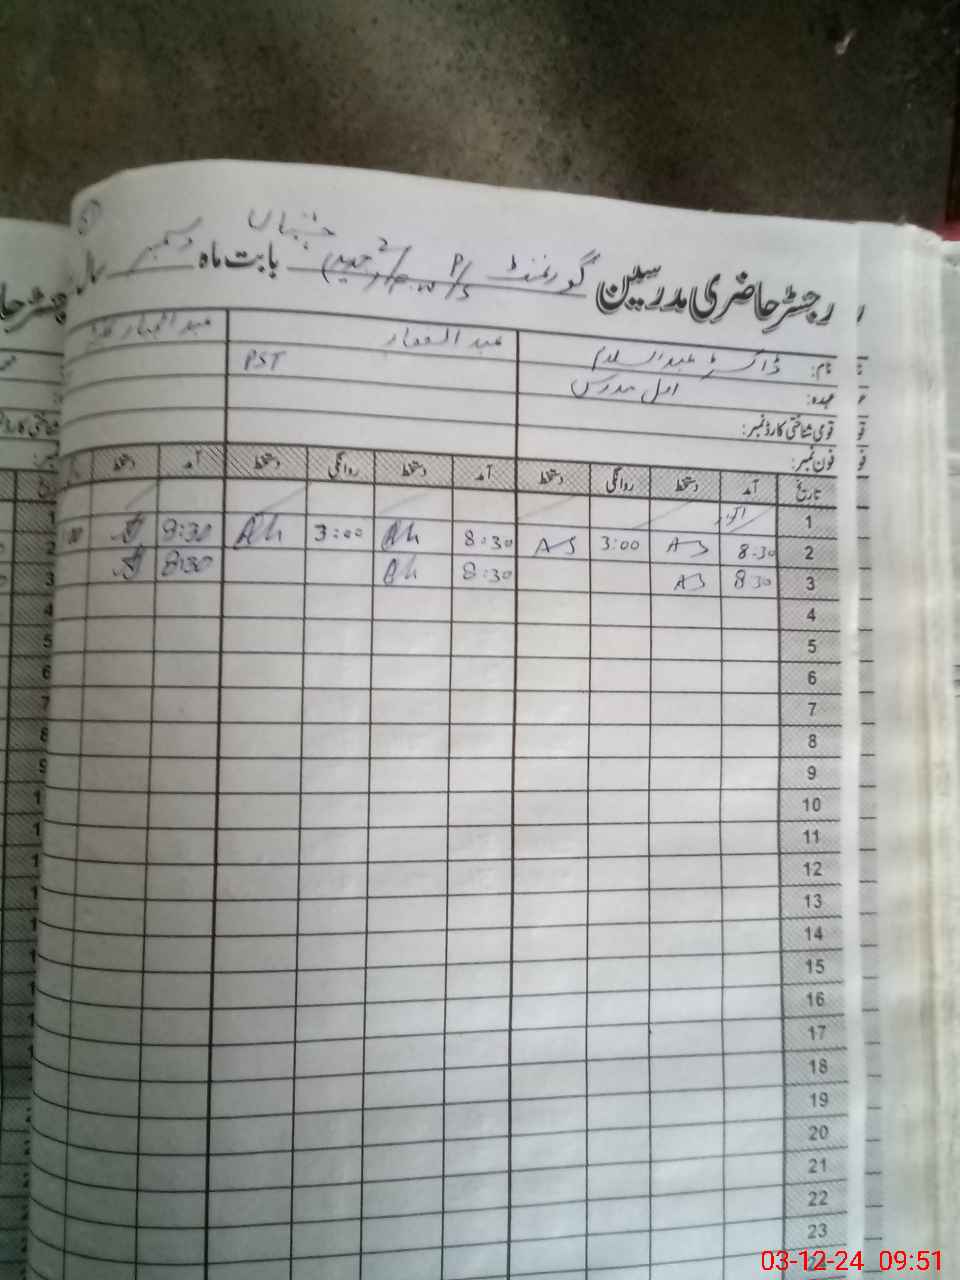 رجسٹر حاضری مدرسین گورنمنٹ P/S بابت ماہ دسمبر
نام: ڈاکٹر عبدالسلام عبدالغفار عبدالجبار
عہدہ: اول مدرس PST
قومی شناختی کارڈ نمبر:
فون نمبر:
تاریخ آمد دستخط روانگی دستخط آمد دستخط روانگی دستخط آمد دستخط
1 اتوار
2 8:30 AS 3:00 AS 8:30 Ah 3:00 Ah 8:30
3 8 30 AS 8:30 Ah 8:30
4
5
6
7
8
9
10
11
12
13
14
15
16
17
18
19
20
21
22
23
24
03-12-24 09:51